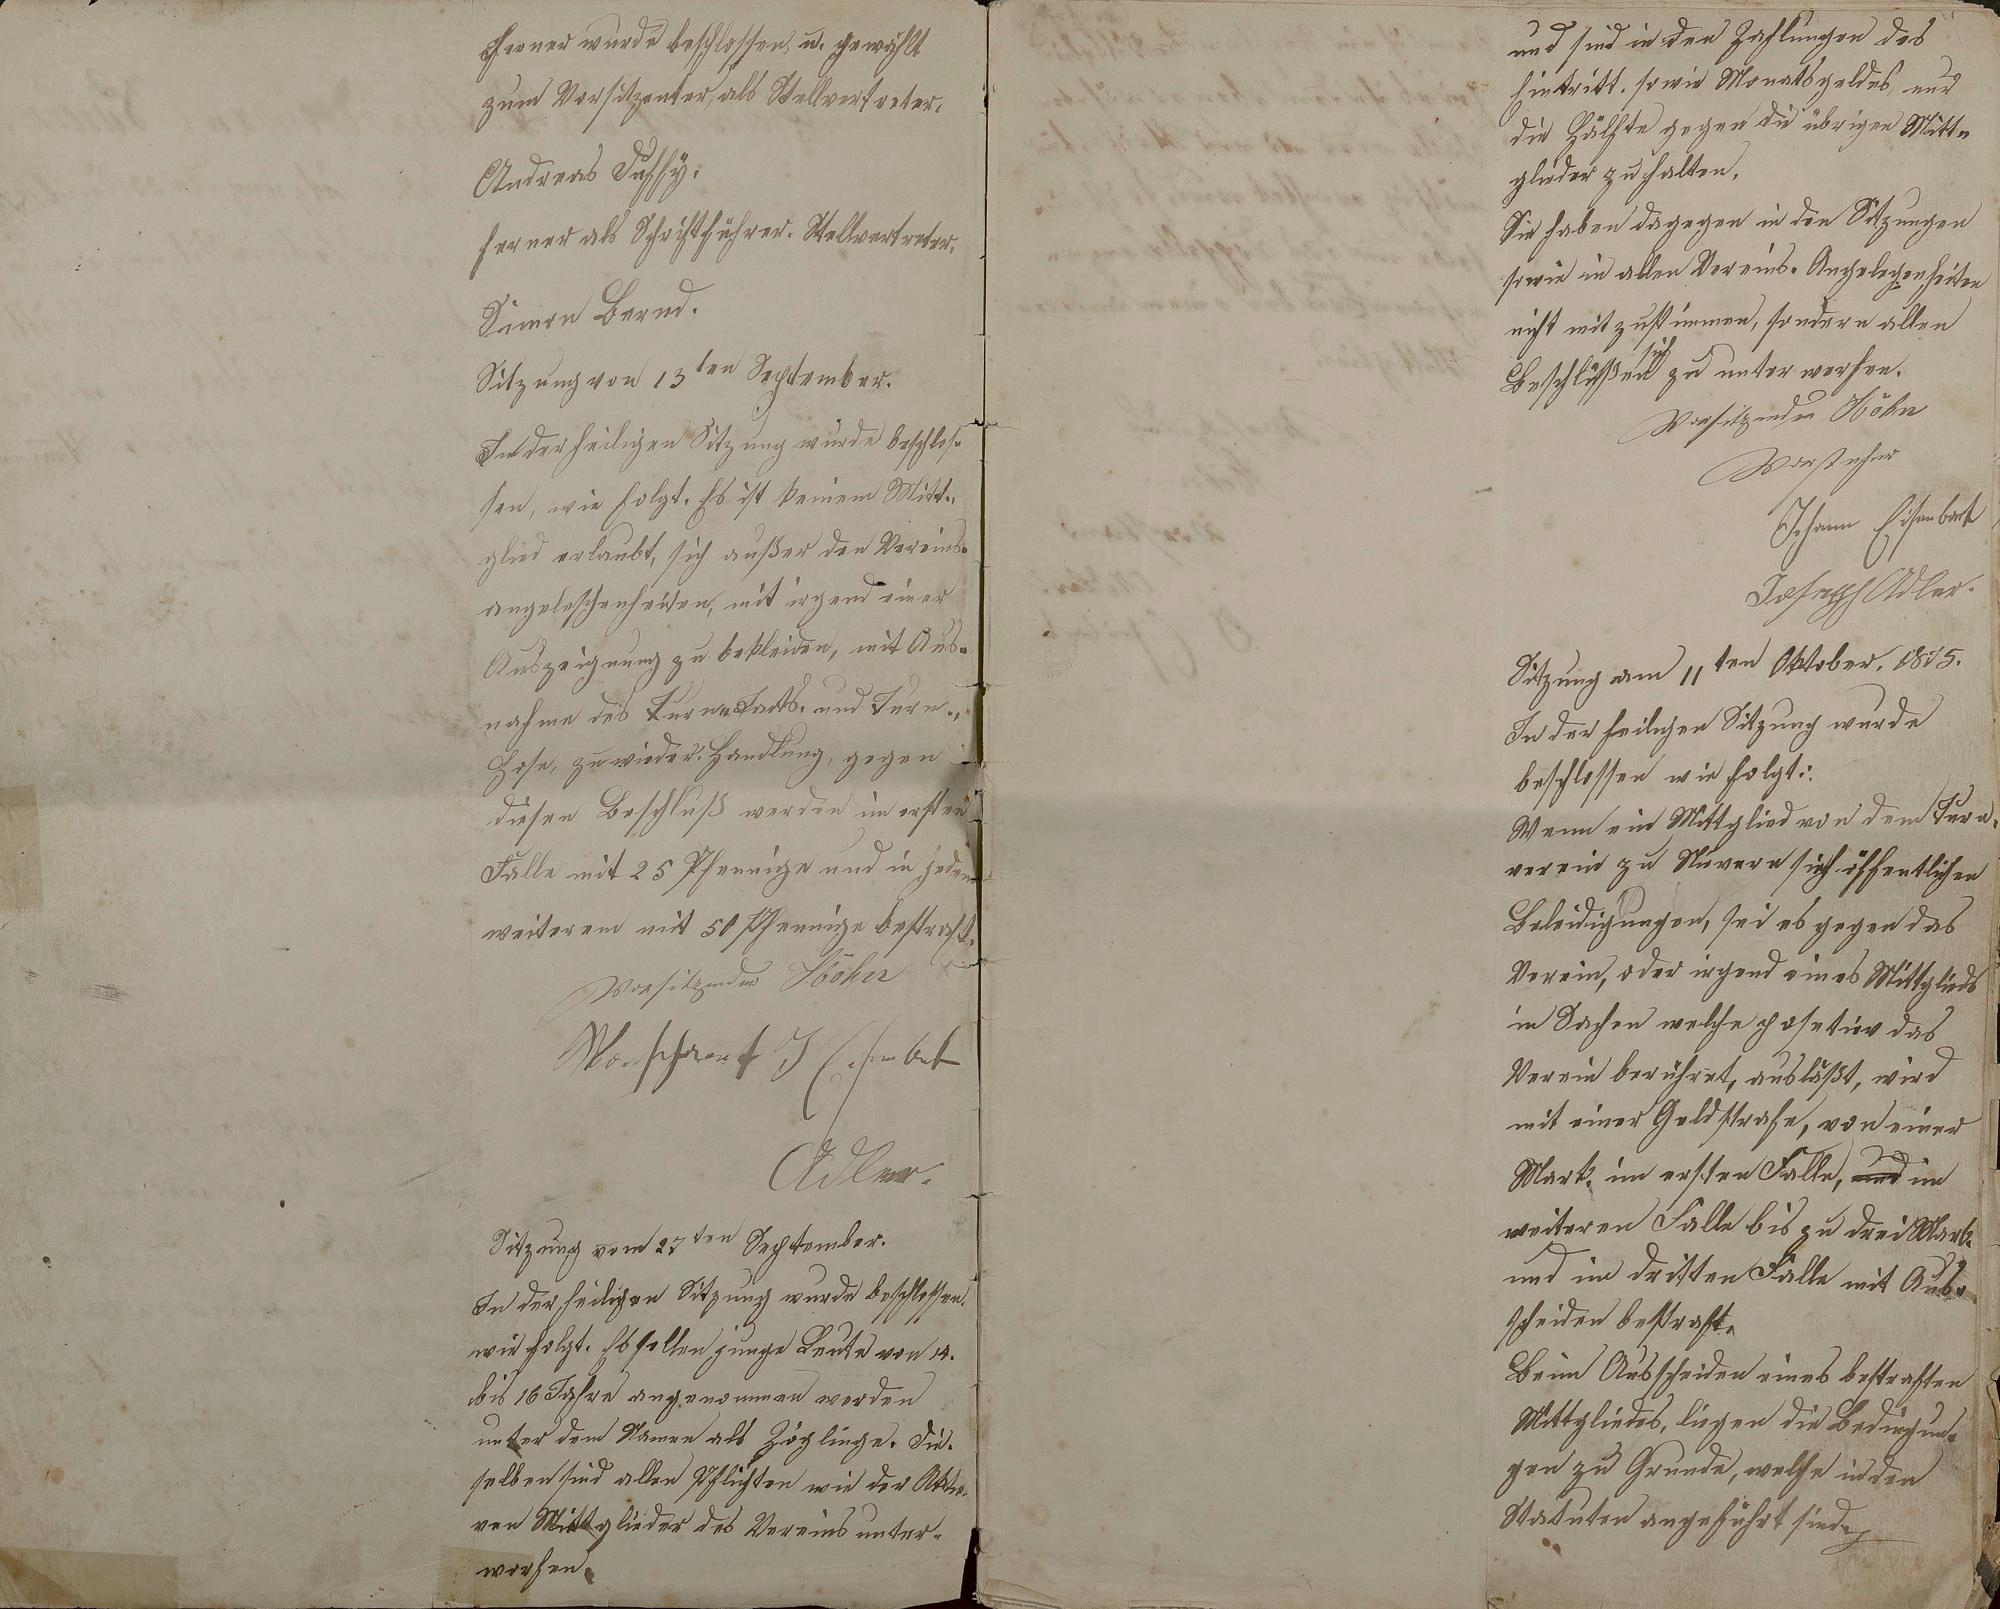 Ferner wurde beschlossen u. gewählt
zum Vorsitzenter, als Stellvertreter.
Andreas Duffy.
ferner als Schriftführer-Stellvertreter.
Simon Bernd.
Sitzung von 13ten September.
In der heiligen Sitzung wurde beschlos-
sen, wie folgt. Es ist keinem Mitt-
glied erlaubt, sich außer den Vereins-
angeleschenheiten, mit irgend einer
Auszeignung zu bekleiden, mit Aus-
nahme des und Turn-
Hose, zuwieder-Handlung, gegen
diesen Beschluß werden im ersten
Falle mit 25 Pfennige und in jedem
weiterem mit 50 Pfennige bestraft.
Vorsitzender Höhn
Adler.
Sitzung vom 27ten September.
In der heiligen Sitzung wurde beschlossen.
wie folgt. Es sollen junge Leute von 14.
bis 16 Jahre angenommen werden
unter dem Namen als Zöglinge. Die-
selben sind allen Pflichten wie der Akti-
ven Mittglieder des Vereins unter-
worfen.
und sind in den Zahlungen des
Eintritt- sowie Monatsgeldes, nur
die Hälfte gegen die übrigen Mitt-
glieder zu halten.
Sie haben dagegen in den Sitzungen
sowie in allen Vereins-Angelegenheiten
nicht mitzustimmen, sondern allen
Beschlüßen sich zu unterwerfen.
Vorsitzender Höhn
Vorsteher
Johann Eisenbart
Joseph Adler.
Sitzung am 11ten Oktober. 1875.
In der heiligen Sitzung wurde
beschlossen wie folgt:
Wenn ein Mittglied von dem Turn-
verein zu sich öffentlichen
Beleidigungen, sei es gegen das
Verein, oder irgend eines Mittglieds
in Sachen welche posetiev das
Verein berühret, ausläßt, wird
mit einer Geldstrafe, von einer
Mark. im ersten Falle, und im
weiteren Falle bis zu drei Mark.
und im dritten Falle mit Aus-
scheiden bestraft.
Beim Ausscheiden eines bestraften
Mittgliedes, liegen die Bedingun-
gen zu Grunde, welche in den
Statuten angeführt sind.